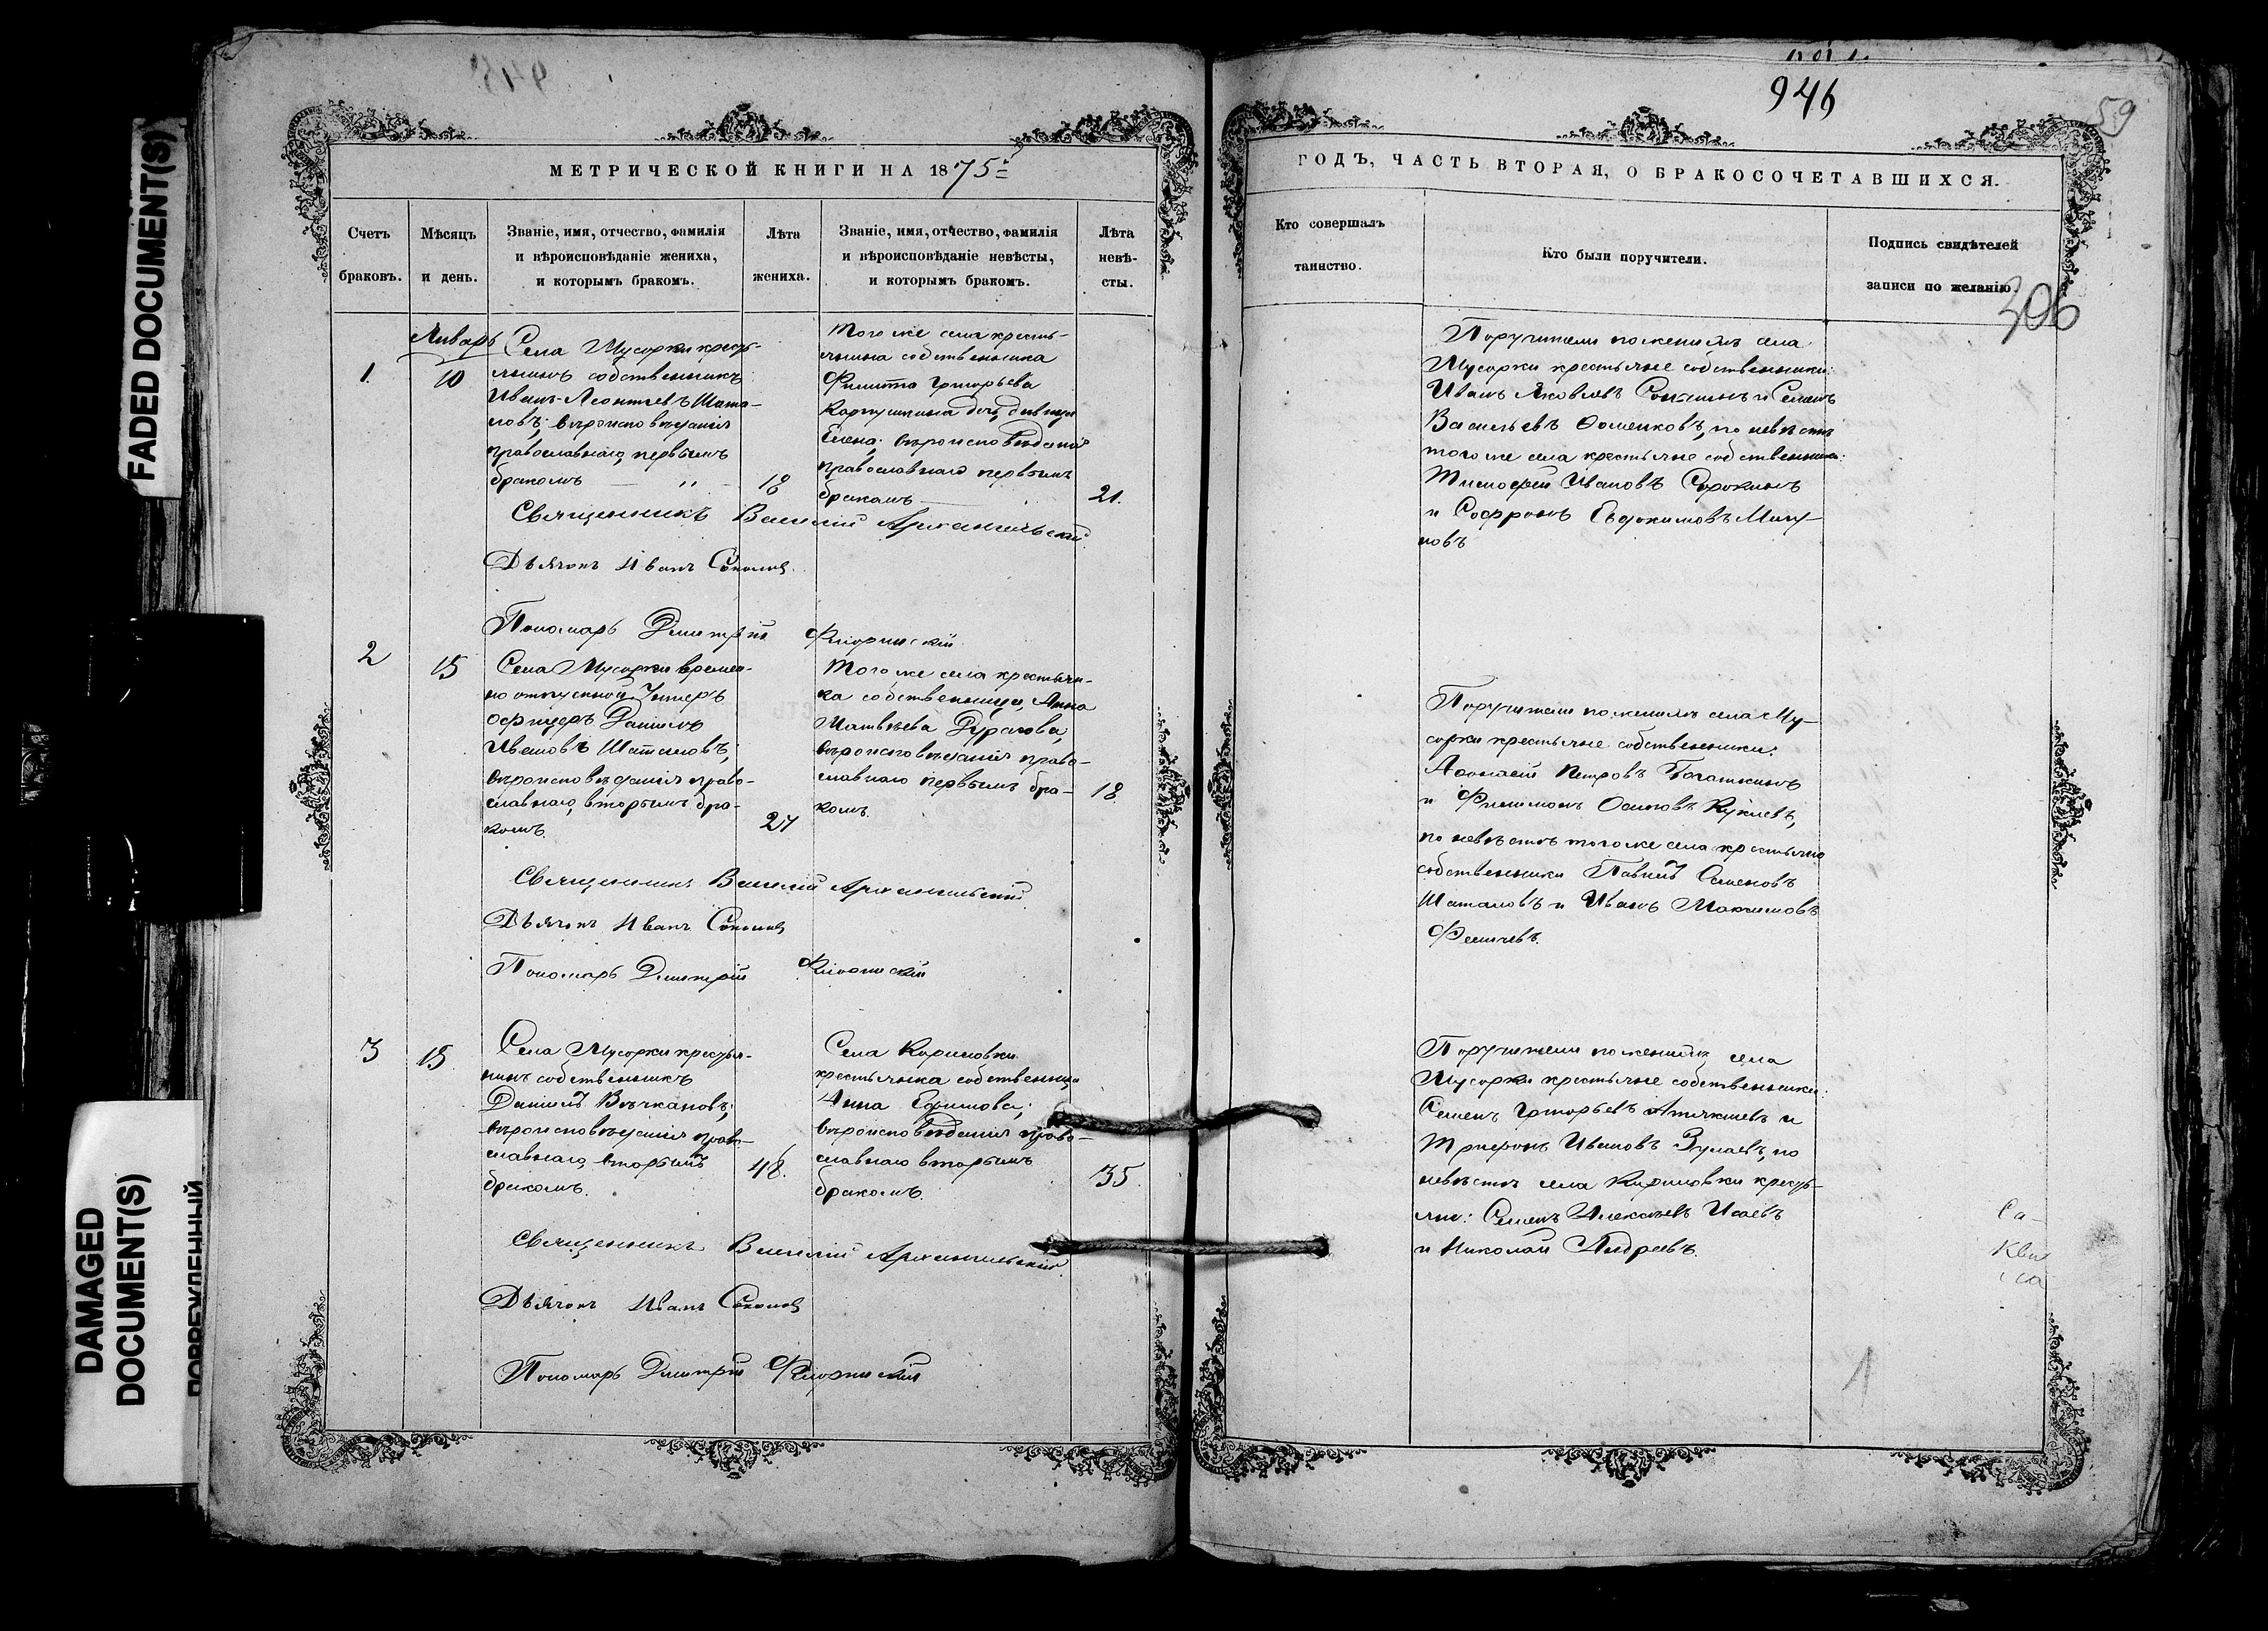 FADED DOCUMENT(S)
DAMAGED
DOCUMENT(S)
ПОВРЕЖДЕННЫЙ
МЕТРИЧЕСКОЙ КНИГИ НА 1875
Счетъ
браковъ.
Мѣсяцъ
и день.
Званіе, имя, отчество, фамилія
и вѣроисповѣданіе жениха,
и которымъ бракомъ.
Лѣта
жениха.
Званіе, имя, отчество, фамилія
и вѣроисповѣданіе невѣсты,
и которымъ бракомъ.
Лѣта
невѣ-
сты.
Январь
1.
10
Села Мусорки кресть-
янинъ собственникъ
Иванъ Леонтьевъ Шата-
ловъ; вѣроисповѣданія
православнаго, первымъ
бракомъ
18
Того же села кресть-
янина собственника
Филиппа Григорьева
дочь девица
Елена; вѣроисповѣданія
православнаго первымъ
бракомъ
21.
Священникъ Василій Архангельскій
Дьячокъ Иванъ Соколовъ
Пономарь Дмитрій
2
15
Села Мусорки времен-
но отпускной Унтеръ
Офицеръ Даніилъ
Ивановъ Шаталовъ;
вѣроисповѣданія право-
славнаго, вторымъ бра-
комъ.
27
Того же села крестьян-
ка собственница Анна
Матвѣева
вѣроисповѣданія право-
славнаго первымъ бра-
комъ.
18
Священникъ Василій Архангельскій
Дьячокъ Иванъ Соколовъ
Пономарь Дмитрій
3
15
Села Мусорки крестья-
нинъ собственникъ
Даніилъ
вѣроисповѣданія право-
славнаго, вторымъ
бракомъ.
48.
Села Кириловки
крестьянка собственница
Анна Ефимова;
вѣроисповѣданія право-
славнаго вторымъ
бракомъ.
35.
Священникъ Василій Архангельскій
Дьячокъ Иванъ Соколовъ
Пономарь Дмитрій
946
59
ГОДЪ, ЧАСТЬ ВТОРАЯ, О БРАКОСОЧЕТАВШИХСЯ.
Кто совершалъ
таинство.
Кто были поручители.
Подпись свидѣтелей
записи по желанію.
306
Поручители по женихѣ села
Мусорки крестьяне собственники:
Иванъ Яковлевъ и Семенъ
Васильевъ Ѳоменковъ, по невѣстѣ
того же села крестьяне собственники:
Тимофей Ивановъ Сорокинъ
и Софронъ Евдокимовъ
новъ
Поручители по женихѣ села Му-
сорки крестьяне собственники:
Аѳонасій Петровъ
и Филимонъ Осиповъ
по невѣстѣ того же села крестьяне
собственники Павелъ Семеновъ
Шаталовъ и Иванъ Максимовъ
Поручители по женихѣ села
Мусорки крестьяне собственники:
Семенъ Григорьевъ и
Трифонъ Ивановъ по
невѣстѣ села Кириловки кресть-
яне: Семенъ Алексѣевъ Исаевъ
и Николай Андреевъ.
1